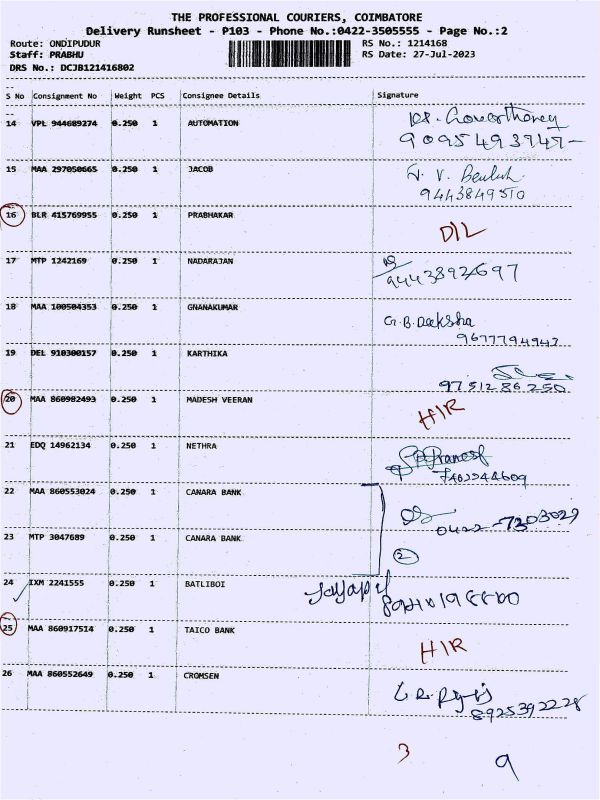 THE PROFESSIONAL COURIERS, COIMBATORE
Delivery Runsheet - P103 - Phone No.:0422-3505555 - Page No.:2
Route: ONDIPUDUR RS No.: 1214168
Staff: PRABHU RS Date: 27-Jul-2023
DRS No.: DCJB121416802
S No Consignment No Weight PCS Consignee Details Signature
14 VPL 944689274 0.250 1 AUTOMATION
15 MAA 297050665 0.250 1 JACOB
9443849510
16 BLR 415769955 0.250 1 PRABHAKAR
D/L
17 MTP 1242169 0.250 1 NADARAJAN
9443892697
18 MAA 100504353 0.250 1 GNANAKUMAR
G.B. Deeksha
9677794943
19 DEL 910300157 0.250 1 KARTHIKA
9751286250
20 MAA 860982493 0.250 1 MADESH VEERAN
H/R
21 EDQ 14962134 0.250 1 NETHRA
22 MAA 860553024 0.250 1 CANARA BANK
0422-7303029
23 MTP 3047689 0.250 1 CANARA BANK
2
24 IXM 2241555 0.250 1 BATLIBOI
25 MAA 860917514 0.250 1 TAICO BANK
H/R
26 MAA 860552649 0.250 1 CROMSEN
8925392228
3 9